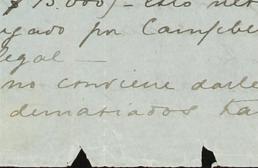 $ 15.000/- esto
gado por Campbe
legal —
no conviene darle
demasiados ta